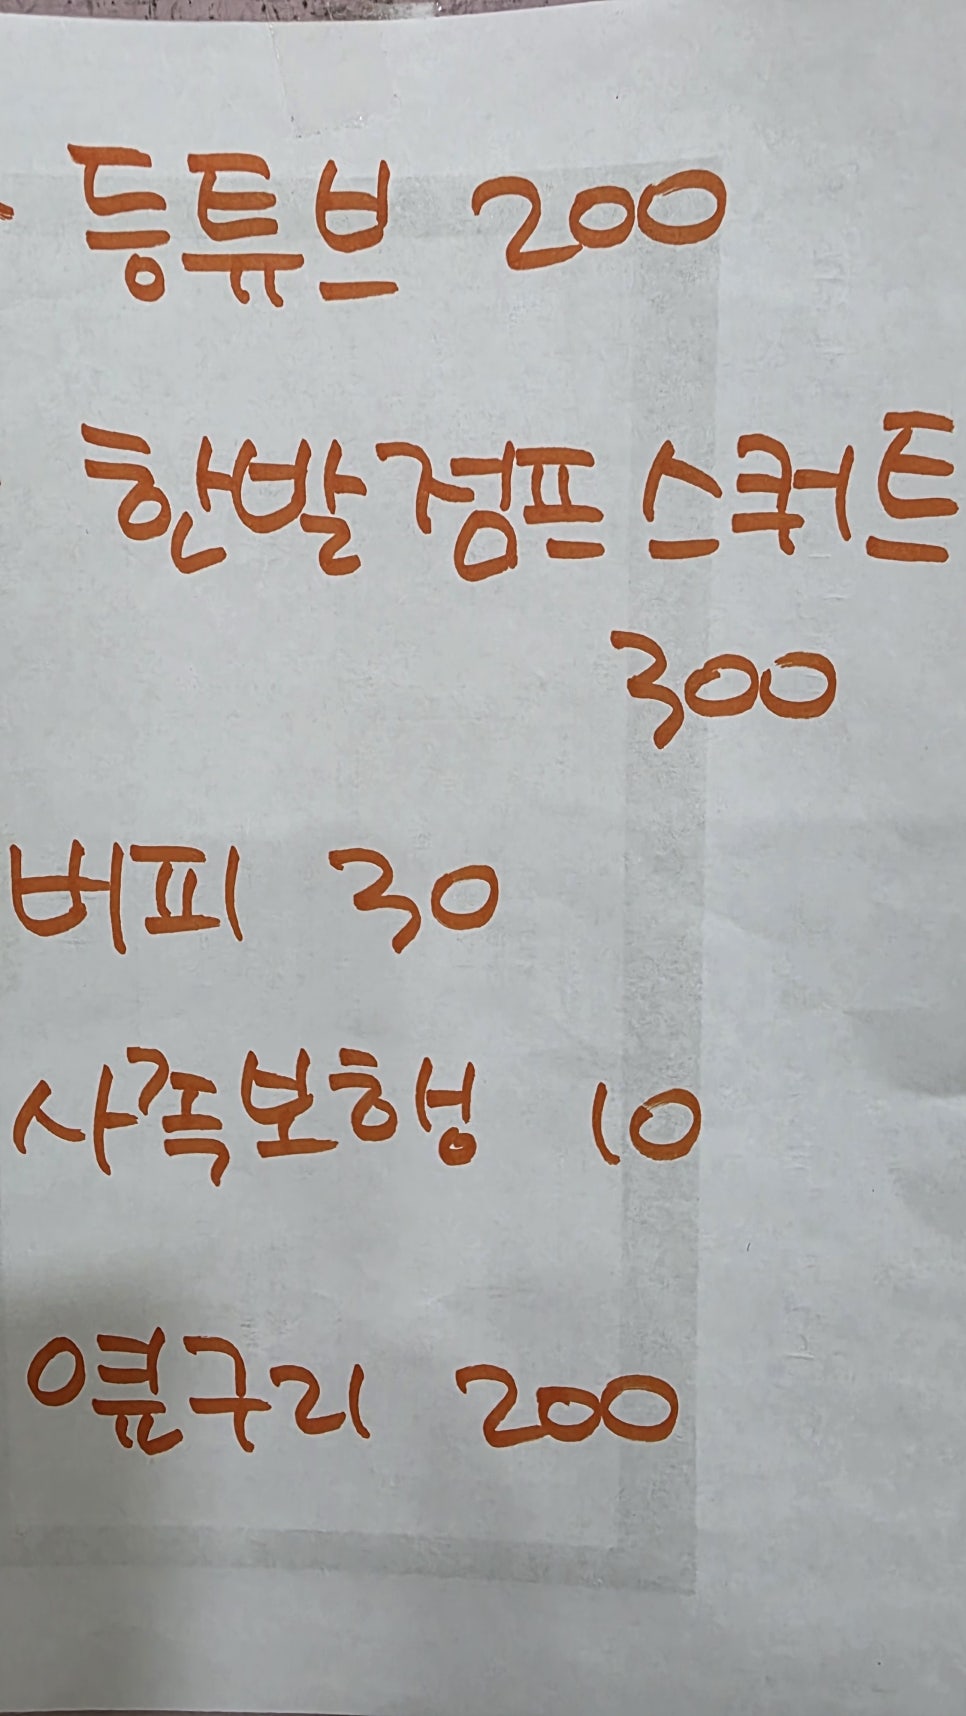 등튜브 200
한발 점프 스쿼트
300
버피 30
사족보행 10
옆구리 200